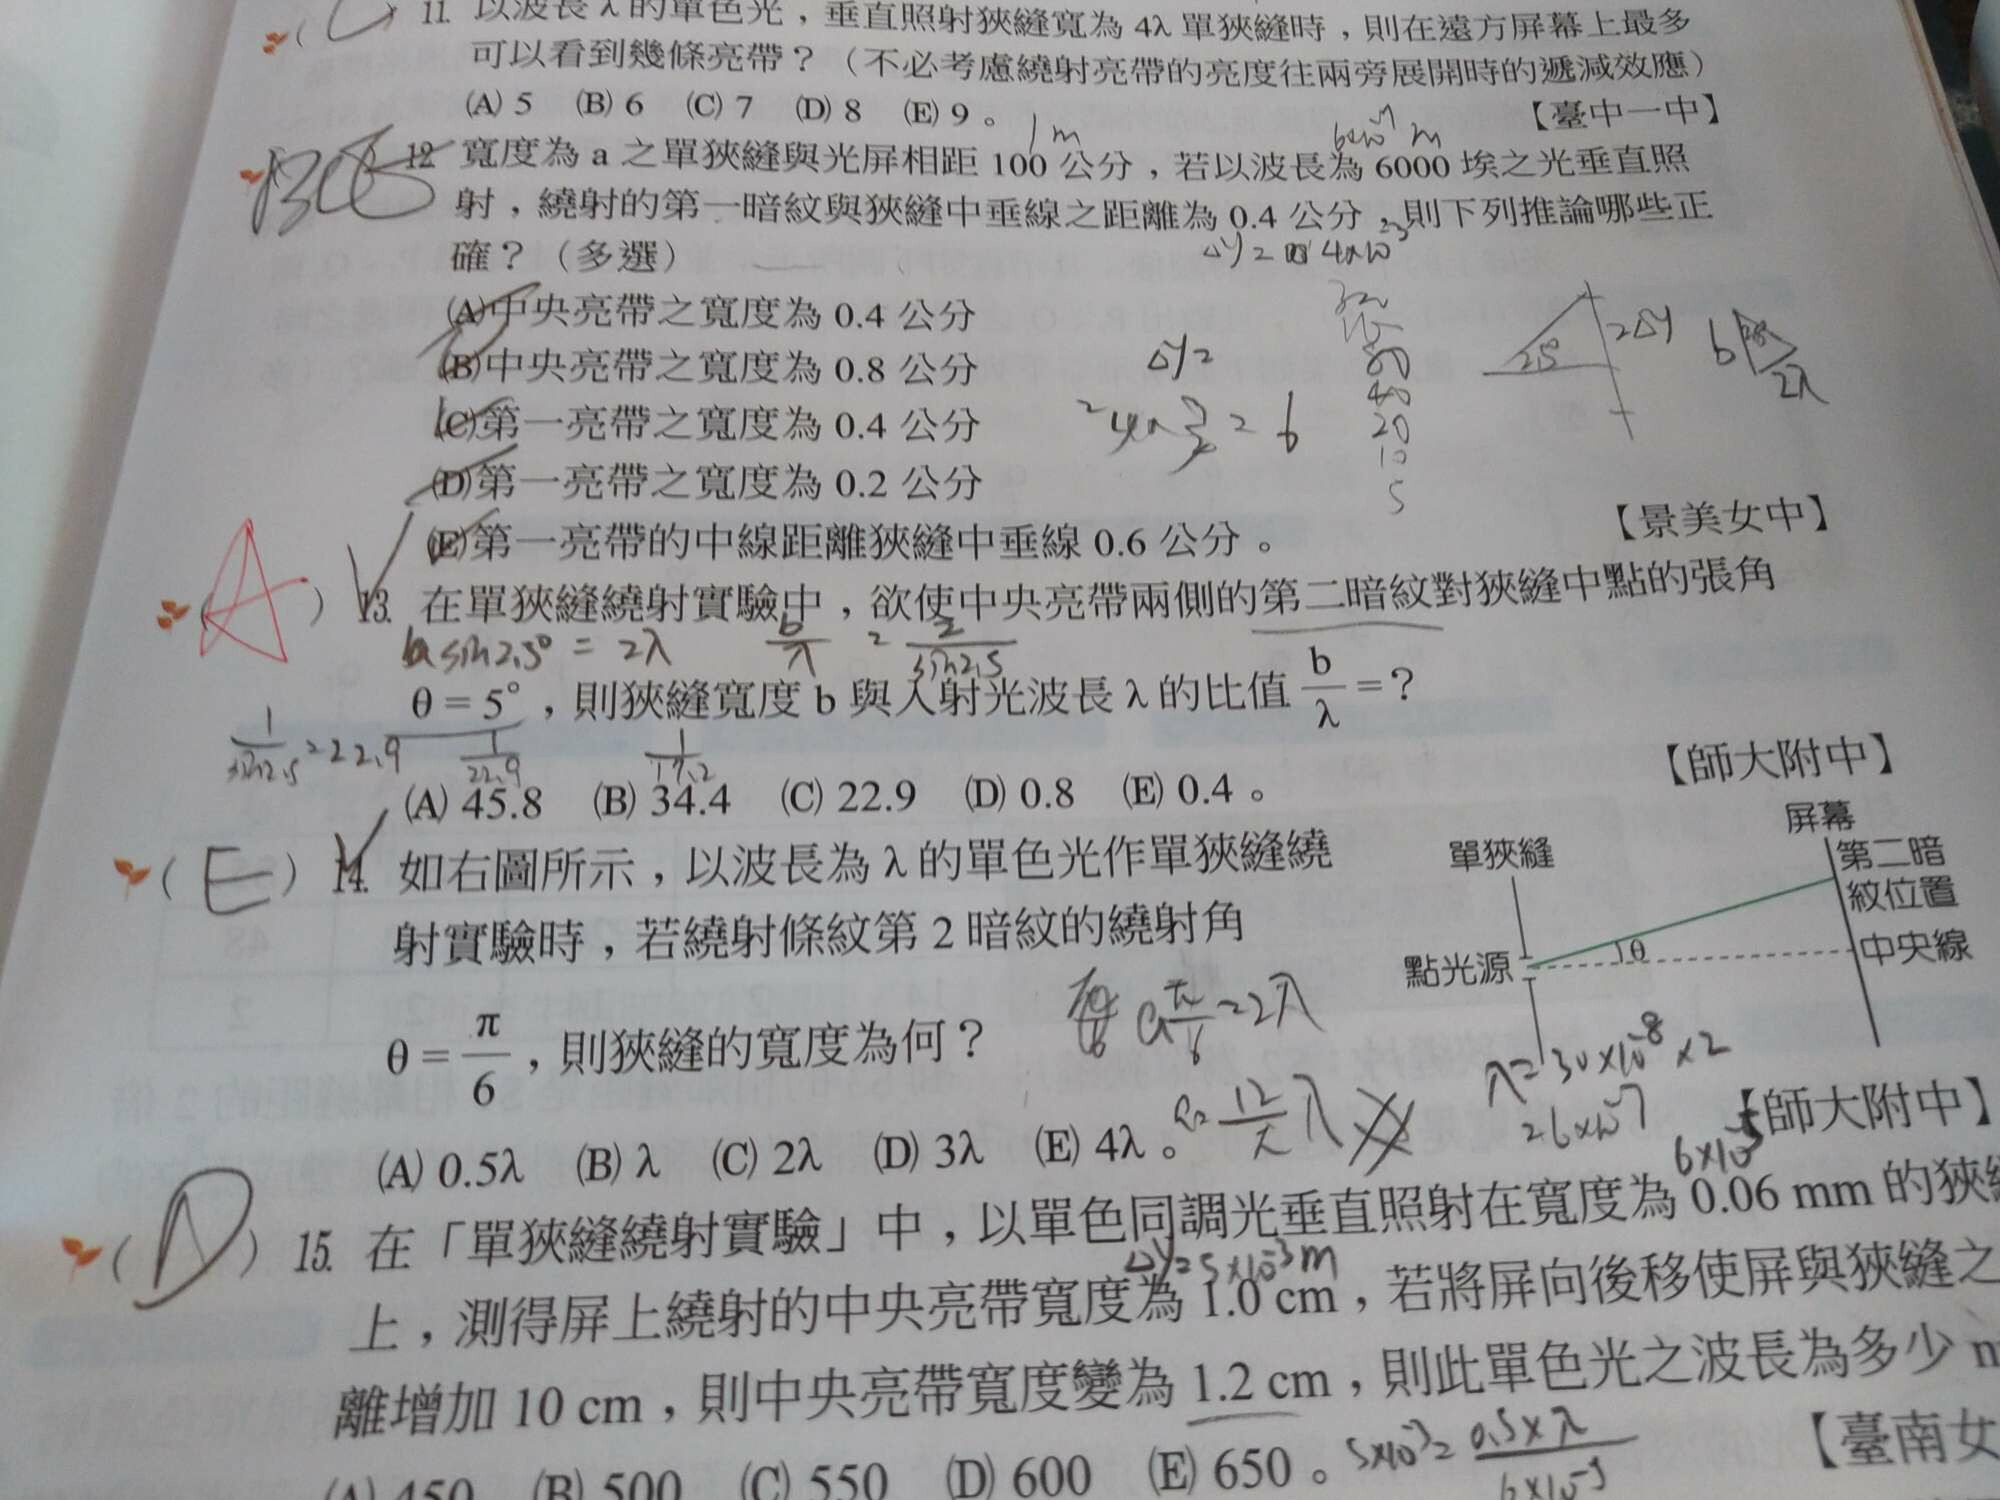 11. 以波長λ的單色光，垂直照射狹縫寬為 4λ 單狹縫時，則在遠方屏幕上最多
可以看到幾條亮帶？（不必考慮繞射亮帶的亮度往兩旁展開時的遞減效應）
(A) 5 (B) 6 (C) 7 (D) 8 (E) 9。
【臺中一中】
1m
6×10⁻⁷ m
12. 寬度為 a 之單狹縫與光屏相距 100 公分，若以波長為 6000 埃之光垂直照
射，繞射的第一暗紋與狹縫中垂線之距離為 0.4 公分，則下列推論哪些正
確？（多選）
(A)中央亮帶之寬度為 0.4 公分
(B)中央亮帶之寬度為 0.8 公分
(C)第一亮帶之寬度為 0.4 公分
(D)第一亮帶之寬度為 0.2 公分
(E)第一亮帶的中線距離狹縫中垂線 0.6 公分。
【景美女中】
Δy=
80
40
20
10
5
2.5°
2Δy
b
2λ
(A) 13. 在單狹縫繞射實驗中，欲使中央亮帶兩側的第二暗紋對狹縫中點的張角
b sin2.5° = 2λ b/λ = 2/sin2.5
θ = 5°，則狹縫寬度 b 與入射光波長 λ 的比值 b/λ = ？
1/sin2.5 = 22.9 1/22.9 1/17.2
(A) 45.8 (B) 34.4 (C) 22.9 (D) 0.8 (E) 0.4。
【師大附中】
(E) 14. 如右圖所示，以波長為 λ 的單色光作單狹縫繞
射實驗時，若繞射條紋第 2 暗紋的繞射角
θ = π/6，則狹縫的寬度為何？
a π/6 = 2λ
(A) 0.5λ (B) λ (C) 2λ (D) 3λ (E) 4λ。
a= 12/π λ
【師大附中】
單狹縫
屏幕
第二暗
紋位置
θ
中央線
點光源
λ=30×10⁻⁸×2
=6×10⁻⁷
6×10⁻⁵
(D) 15. 在「單狹縫繞射實驗」中，以單色同調光垂直照射在寬度為 0.06 mm 的狹縫
Δy=5×10⁻³m
上，測得屏上繞射的中央亮帶寬度為 1.0 cm，若將屏向後移使屏與狹縫之
離增加 10 cm，則中央亮帶寬度變為 1.2 cm，則此單色光之波長為多少 n
(A) 450 (B) 500 (C) 550 (D) 600 (E) 650。
5×10⁻³= 0.5×λ/6×10⁻⁵
【臺南女